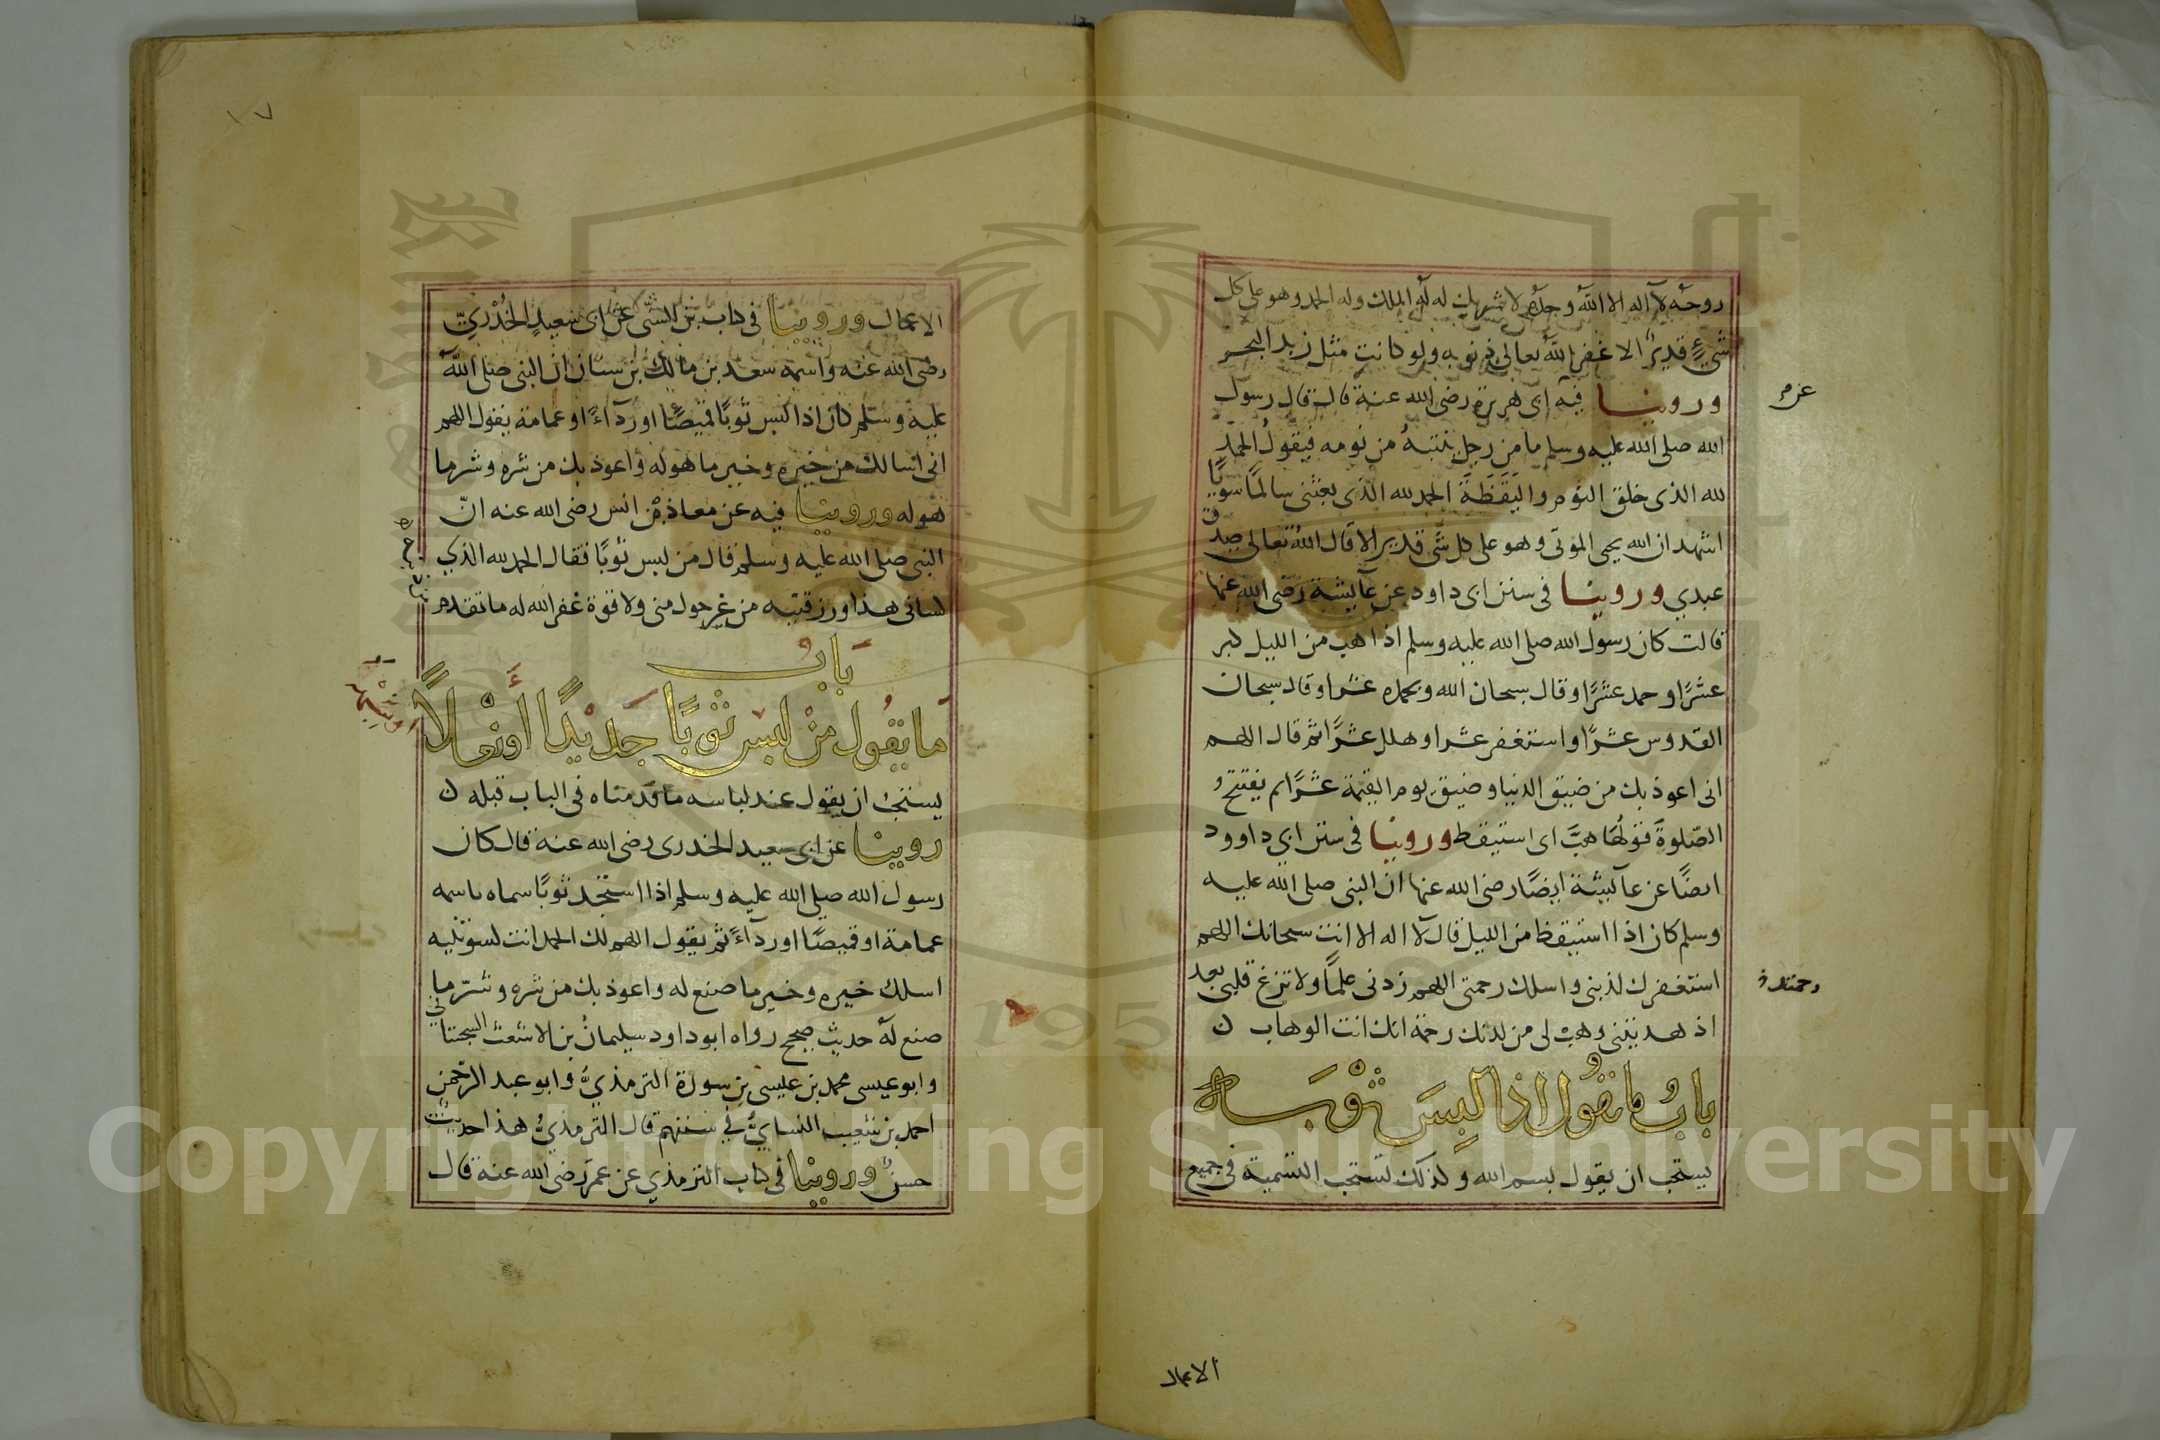 روحه لا اله الا الله وحده لا شريك له له الملك وله الحمد وهو على كل
شيء قدير الا غفر الله تعالى ذنوبه ولو كانت مثل زبد البحر
وروينا فيه ابى هريرة رضى الله عنه قال قال رسول
عن
الله صلى الله عليه وسلم ما من رجل ينتبه من نومه فيقول الحمد
لله الذى خلق النوم واليقظة الحمد لله الذى بعثنى سالمًا سويًا
اشهد ان الله يحيى الموتى وهو على كل شى قدير الا قال الله تعالى صدق
عبدي وروينا فى سنن ابى داود عن عايشة رضى الله عنها
قالت كان رسول الله صلى الله عليه وسلم اذا هب من الليل كبر
عشرًا وحمد عشرًا وقال سبحان الله وبحمده عشرا وقال سبحان
القدوس عشرًا واستغفر عشرا وهلل عشرًا ثم قال اللهم
انى اعوذ بك من ضيق الدنيا وضيق يوم القيمة عشرًا ثم يفتتح
الصلوة قولها هبّ اى استيقظ وروينا فى سنن ابى داوود
ايضًا عن عايشة ايضًا رضى الله عنها ان النبى صلى الله عليه
وسلم كان اذا استيقظ من الليل قال لا اله الا انت سبحانك اللهم
استغفرك لذنبى واسلك رحمتى اللهم زدنى علمًا ولا تزغ قلبى بعد
رحمتك
اذ هديتنى وهب لى من لدنك رحمة انك انت الوهاب ن
بابُ ما يقُول اذا لبِسَ ثَوْبَه
يستحب ان يقول بسم الله وكذلك تستحب التسمية فى جميع
الاعمال
١٧
الاعمال وروينا فى كتاب بن السنّى عن ابى سعيدٍ الخُدْريّ
رضى الله عنه واسمه سعد بن مالك بن سنان ان النبى صلى الله
عليه وسلم كان اذا لبس ثوبًا قميصًا او رداءً او عمامة يقول اللهم
انى اسالك من خيره وخير ما هو له واعوذ بك من شره وشر ما
هو له وروينا فيه عن معاذ بن انس رضى الله عنه انّ
النبى صلى الله عليه وسلم قال من لبس ثوبًا فقال الحمد لله الذي
كسانى هذا ورزقنيه من غير حول منى ولا قوة غفر الله له ما تقدم
بابُ
ما يقُول مَنْ لبس ثوبًا جَديْدًا أونَعْلاً
يستحبّ ان يقول عند لباسه ما قدمناه فى الباب قبله ن
روينا عن ابى سعيد الخدرى رضى الله عنه قال كان
رسول الله صلى الله عليه وسلم اذا استجد ثوبًا سماه باسمه
عمامة او قميصًا او رداءً ثم يقول اللهم لك الحمد انت كسوتنيه
اسلك خيره وخير ما صنع له واعوذ بك من شره وشرّ ما
صنع له حديث صحيح رواه ابو داود سليمانُ بن الاشعث السجستانى
وابو عيسى محمد بن عليسى بن سورة الترمذيُّ وابو عبد الرحمن
احمد بن شعيب النسايُّ في سننهم قال الترمذيُّ هذا حديث
حسنٌ وروينا فى كتاب الترمذي عن عمر رضى الله عنه قال
Copyright © King Saud University
1957